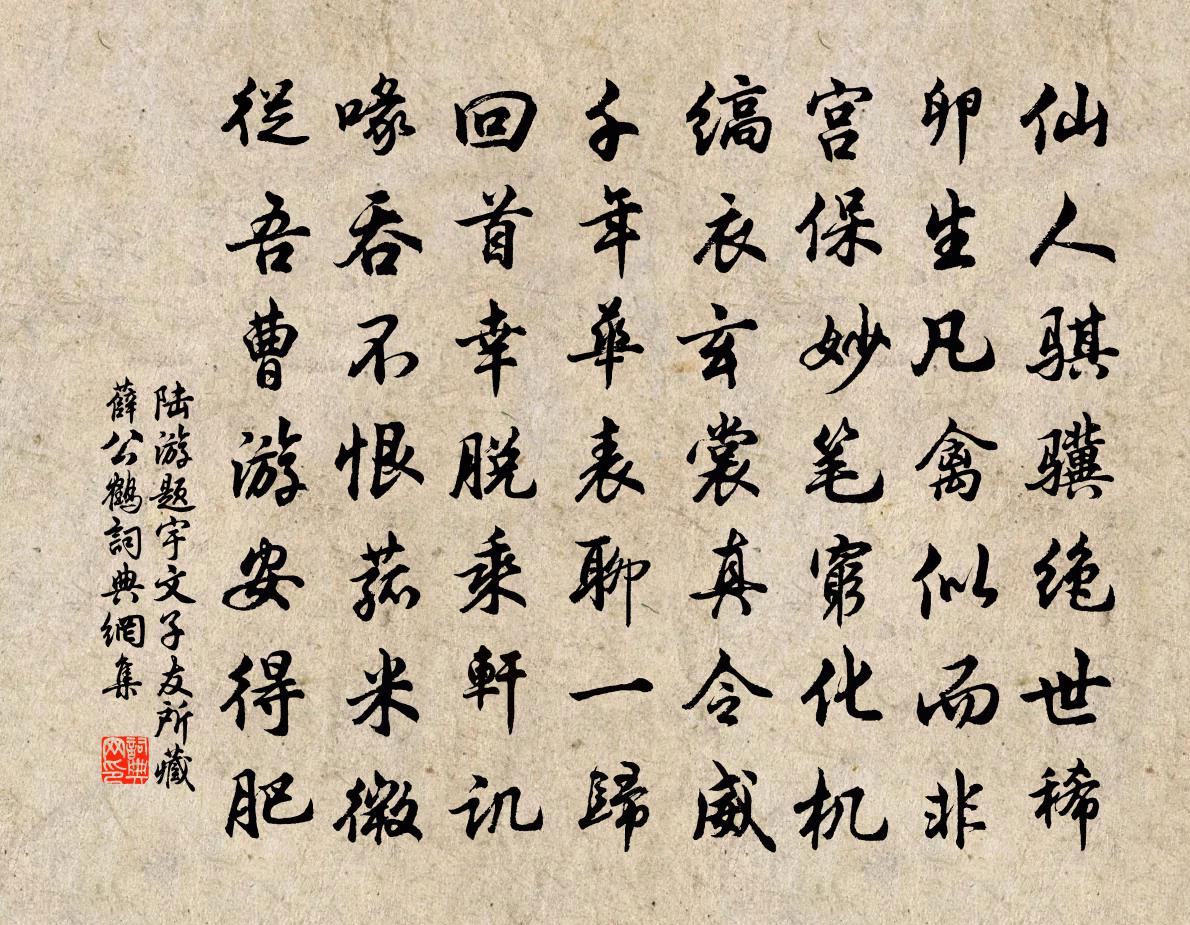 仙人骐骥绝世稀
卵生凡禽似而非
宫保妙笔窮化机
缟衣玄裳真令威
千年華表聊一歸
回首幸脱乘軒讥
喙吞不恨菰米微
從吾曹游安得肥
陆游题宇文子友所藏
薛公鶴詞典網集
詞典网印